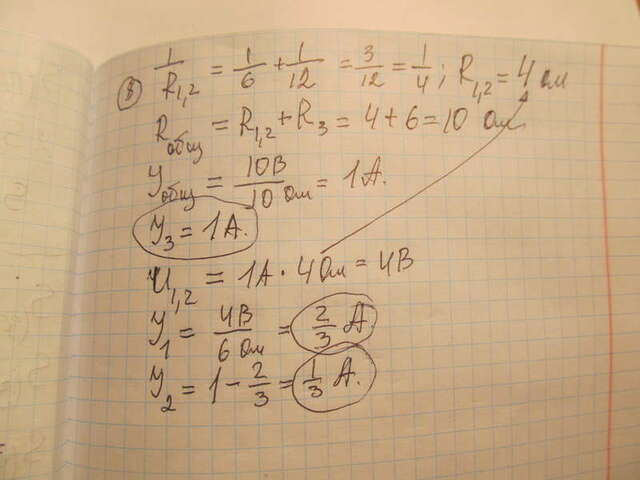 ⑧ 1/R₁,₂ = 1/6 + 1/12 = 3/12 = 1/4; R₁,₂ = 4 Ом
Rобщ = R₁,₂ + R₃ = 4 + 6 = 10 Ом
Yобщ = 10В/10 Ом = 1А.
Y₃ = 1А.
U₁,₂ = 1А · 4 Ом = 4В
Y₁ = 4В/6 Ом = 2/3 А
Y₂ = 1 - 2/3 = 1/3 А.